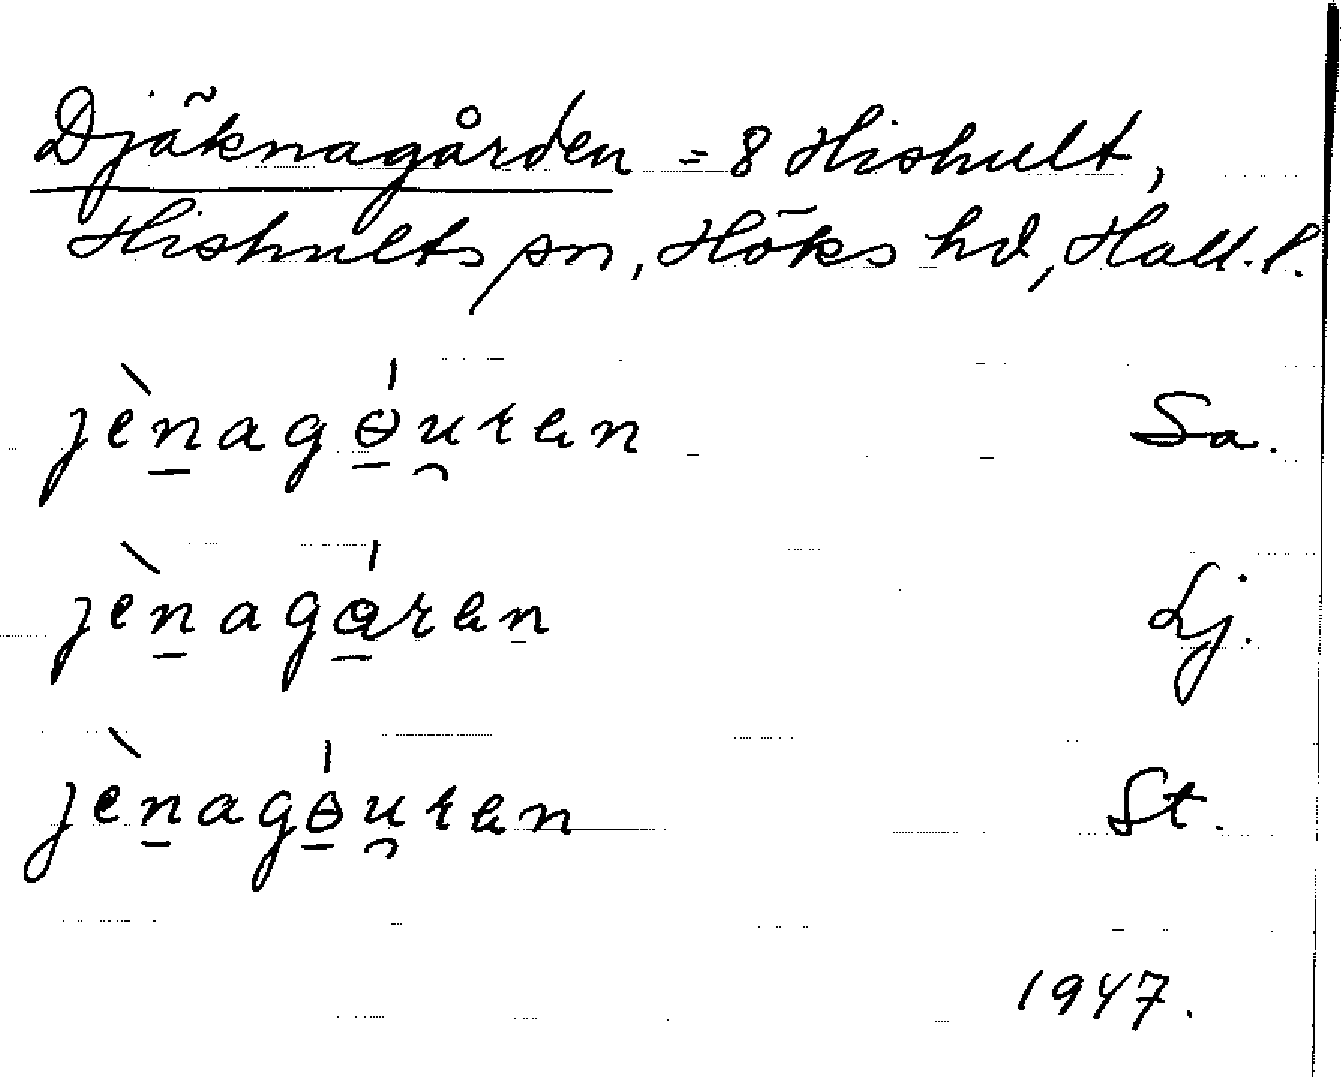 Djäknagården = 8 Hishult,
Hishults sn, Höks hd, Hall. l.
jènagɵ́u̯ren Sa.
jènagáren Lj.
jènagɵ́u̯ren St.
1947.